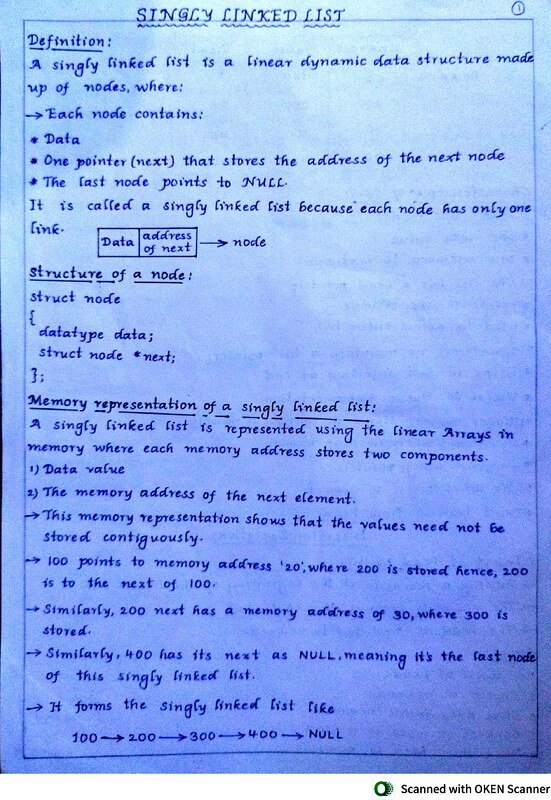 SINGLY LINKED LIST
1
Definition:
A singly linked list is a linear dynamic data structure made
up of nodes, where:
→ Each node contains:
* Data
* One pointer (next) that stores the address of the next node
* The last node points to NULL.
It is called a singly linked list because each node has only one
link.
Data | address of next → node
Structure of a node:
struct node
{
datatype data;
struct node *next;
};
Memory representation of a singly linked list:
A singly linked list is represented using the linear Arrays in
memory where each memory address stores two components.
1) Data value
2) The memory address of the next element.
→ This memory representation shows that the values need not be
stored contiguously.
→ 100 points to memory address '20', where 200 is stored hence, 200
is to the next of 100.
→ Similarly, 200 next has a memory address of 30, where 300 is
stored.
→ Similarly, 400 has its next as NULL, meaning it's the last node
of this singly linked list.
→ It forms the singly linked list like
100 → 200 → 300 → 400 → NULL
Scanned with OKEN Scanner